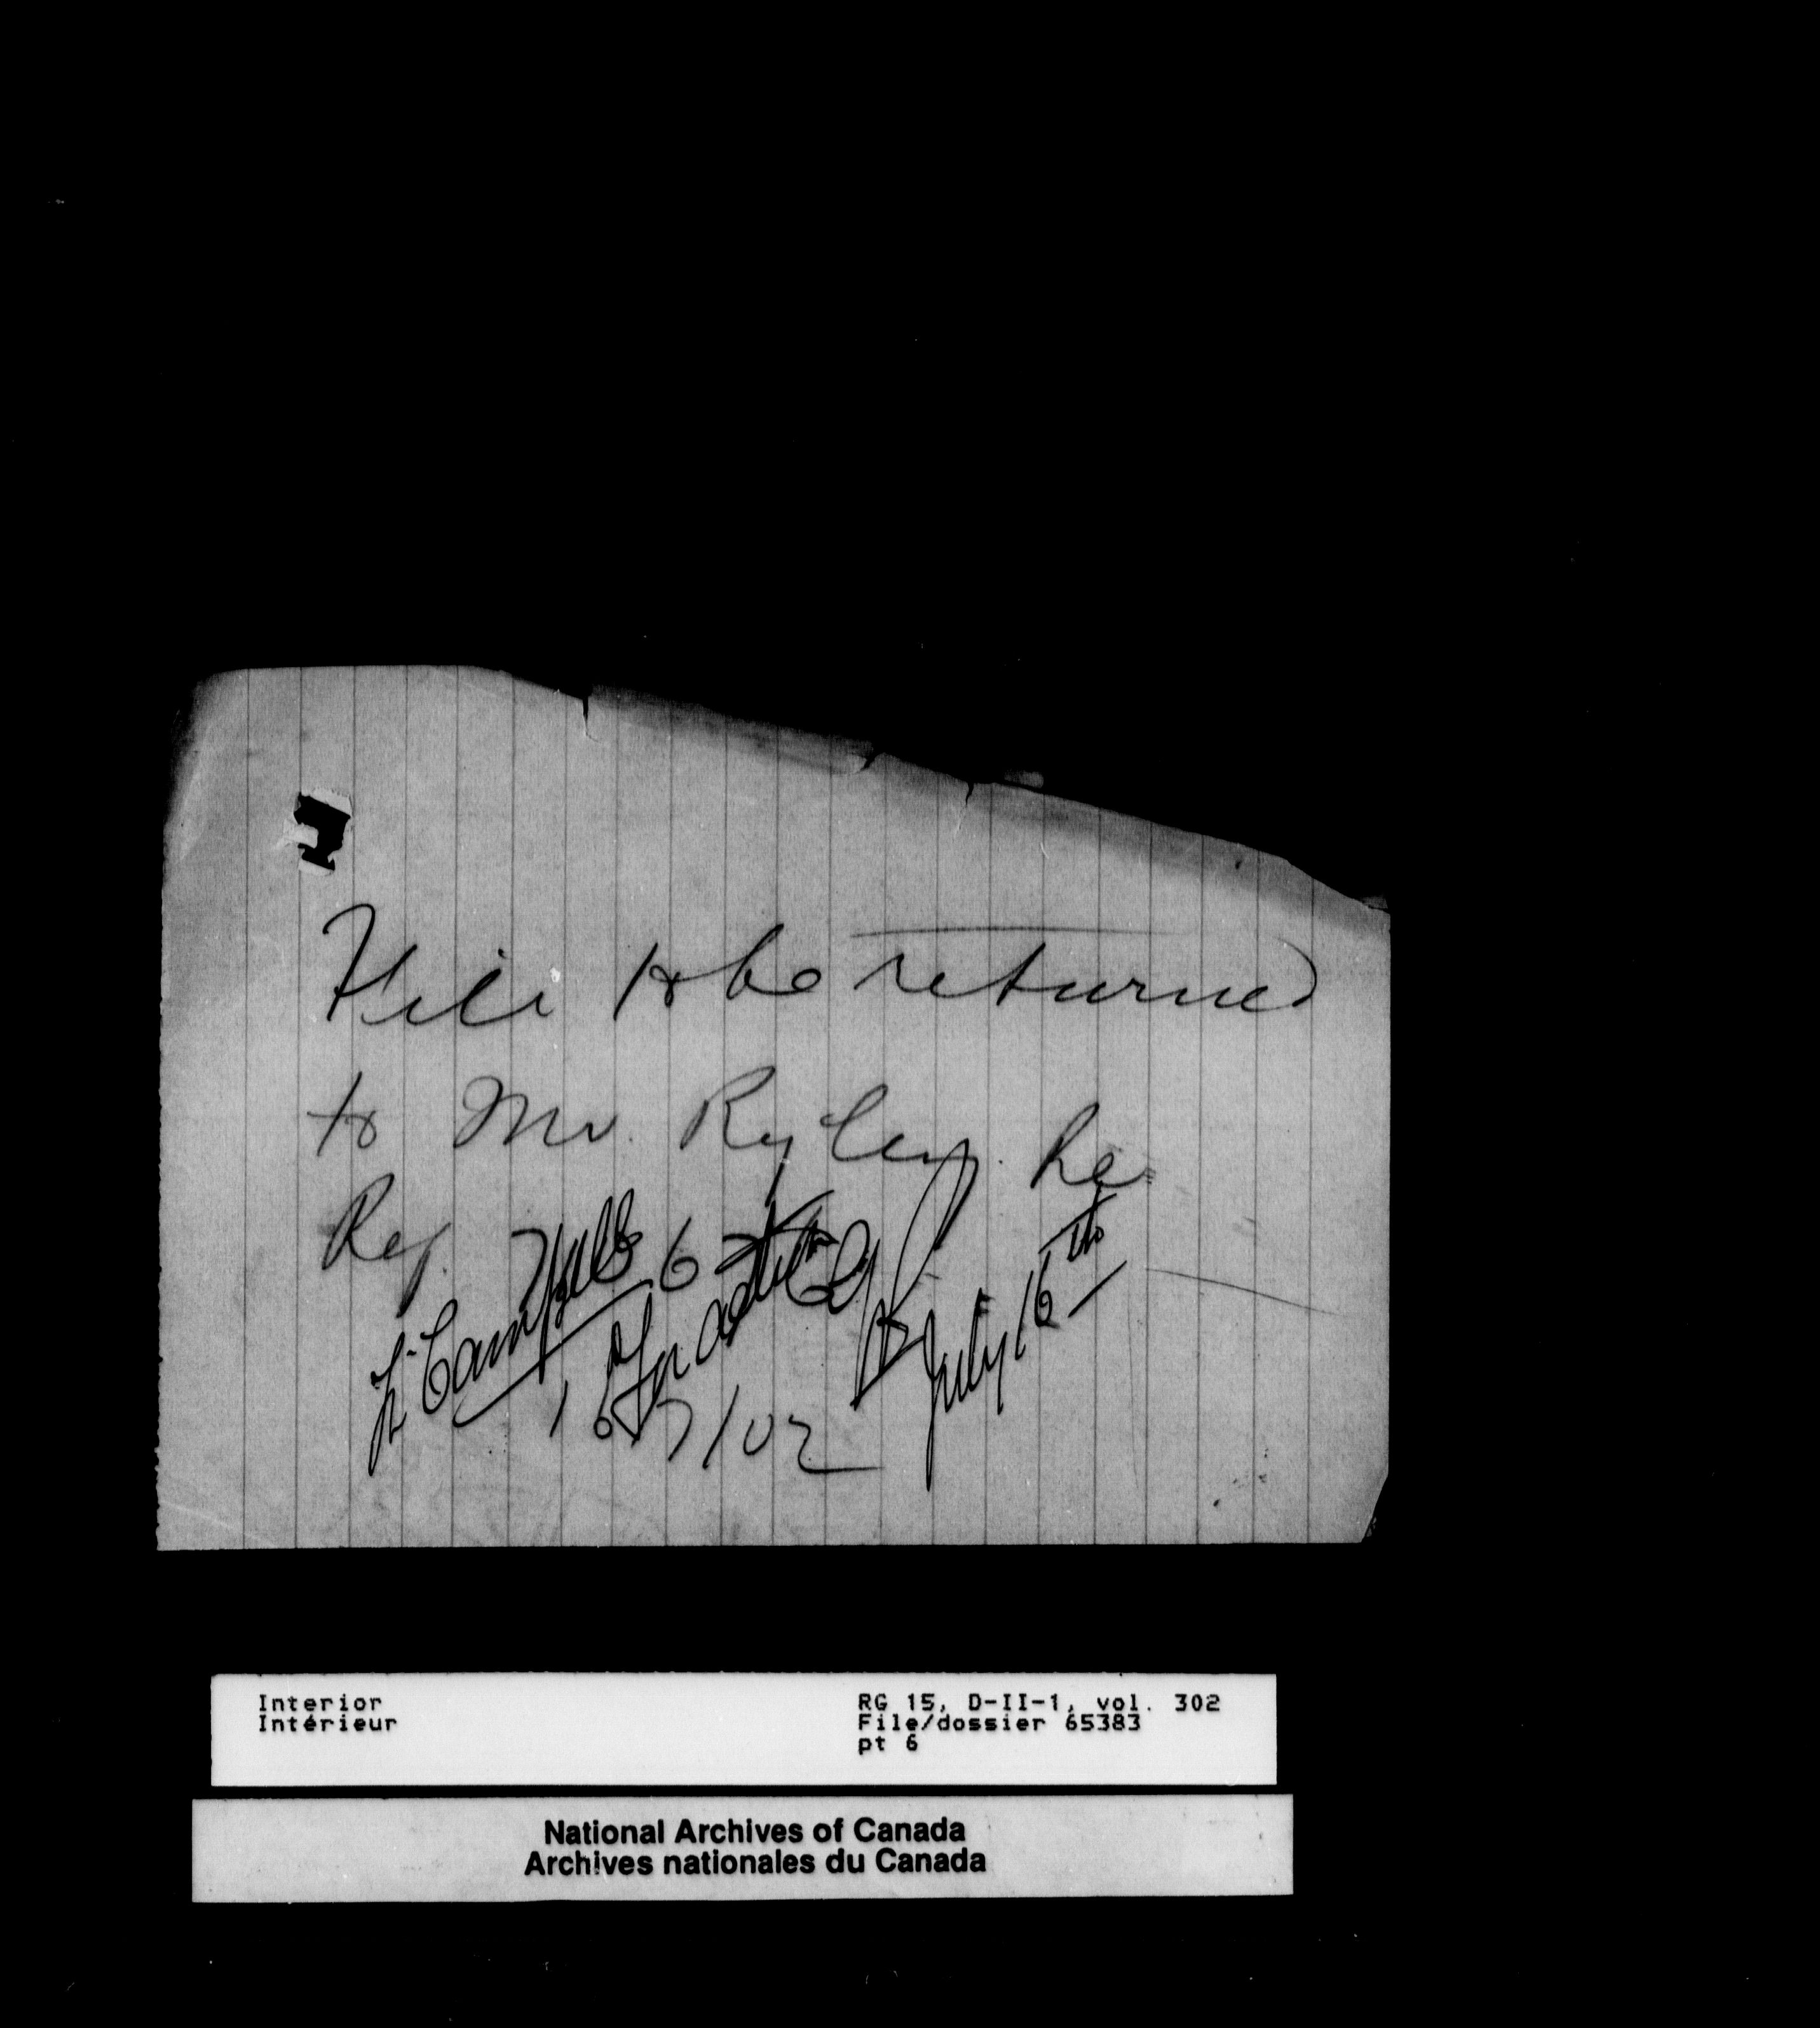 File to be returned
to Mr. Ryley. Re
Reg.
Campbell
July 16th
16/7/02
Interior
Intérieur
RG 15, D-II-1, vol. 302
File/dossier 65383
pt 6
National Archives of Canada
Archives nationales du Canada